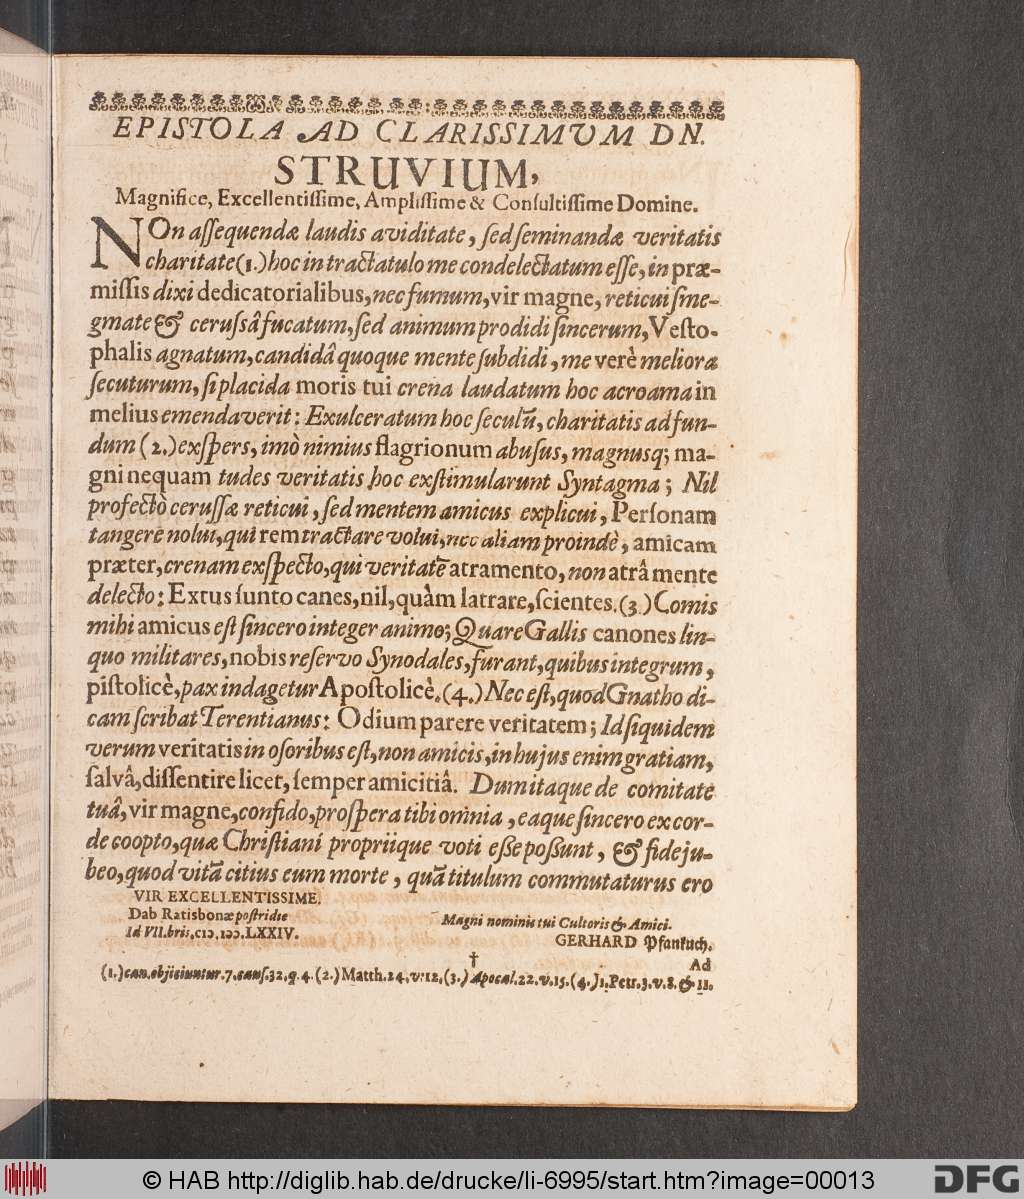 EPISTOLA AD CLARISSIMUM DN.
STRUVIUM,
Magnifice, Excellentiſſime, Ampliſſime & Conſultiſſime Domine.
NOn aſſequendæ laudis aviditate, ſed ſeminandæ veritatis
charitate (1.) hoc in tractatulo me condelectatum eſſe, in præ-
miſſis dixi dedicatorialibus, nec fumum, vir magne, reticui ſme-
gmate & ceruſsâ fucatum, ſed animum prodidi ſincerum, Veſto-
phalis agnatum, candidâ quoque mente ſubdidi, me verè meliora
ſecuturum, ſi placida moris tui crena laudatum hoc acroama in
melius emendaverit: Exulceratum hoc ſeculū, charitatis ad fun-
dum (2.) exſpers, imò nimius flagrionum abuſus, magnusq; ma-
gni nequam tudes veritatis hoc exſtimularunt Syntagma; Nil
profectò ceruſſæ reticui, ſed mentem amicus explicui, Perſonam
tangere nolui, qui rem tractare volui, nec aliam proindè, amicam
præter, crenam exſpecto, qui veritatē atramento, non atrâ mente
delecto: Extus ſunto canes, nil, quàm latrare, ſcientes. (3.) Comis
mihi amicus eſt ſincero integer animo; Quare Gallis canones lin-
quo militares, nobis reſervo Synodales, furant, quibus integrum,
piſtolicè, pax indagetur Apoſtolicè. (4.) Nec eſt, quod Gnatho di-
cam ſcribat Terentianus: Odium parere veritatem; Id ſiquidem
verum veritatis in oſoribus eſt, non amicis, in hujus enim gratiam,
ſalvâ, diſſentire licet, ſemper amicitiâ. Dum itaque de comitate
tuâ, vir magne, confido, proſpera tibi omnia, eaque ſincero ex cor-
de coopto, quæ Chriſtiani propriique voti eße poßunt, & fide ju-
beo, quod vitā citius eum morte, quā titulum commutaturus ero
VIR EXCELLENTISSIME.
Dab Ratisbonæ poſtridie
Id VII.bris, cIↄ, Iↄↄ.LXXIV.
Magni nominis tui Cultoris & Amici.
GERHARD Pfankuch.
†
Ad
(1.) can. objiciuntur. 7. cauſ. 32. q. 4. (2.) Matth. 24. v. 12. (3.) Apocal. 22. v. 15. (4.) 1. Petr. 3. v. 8. & 11.
© HAB http://diglib.hab.de/drucke/li-6995/start.htm?image=00013
DFG